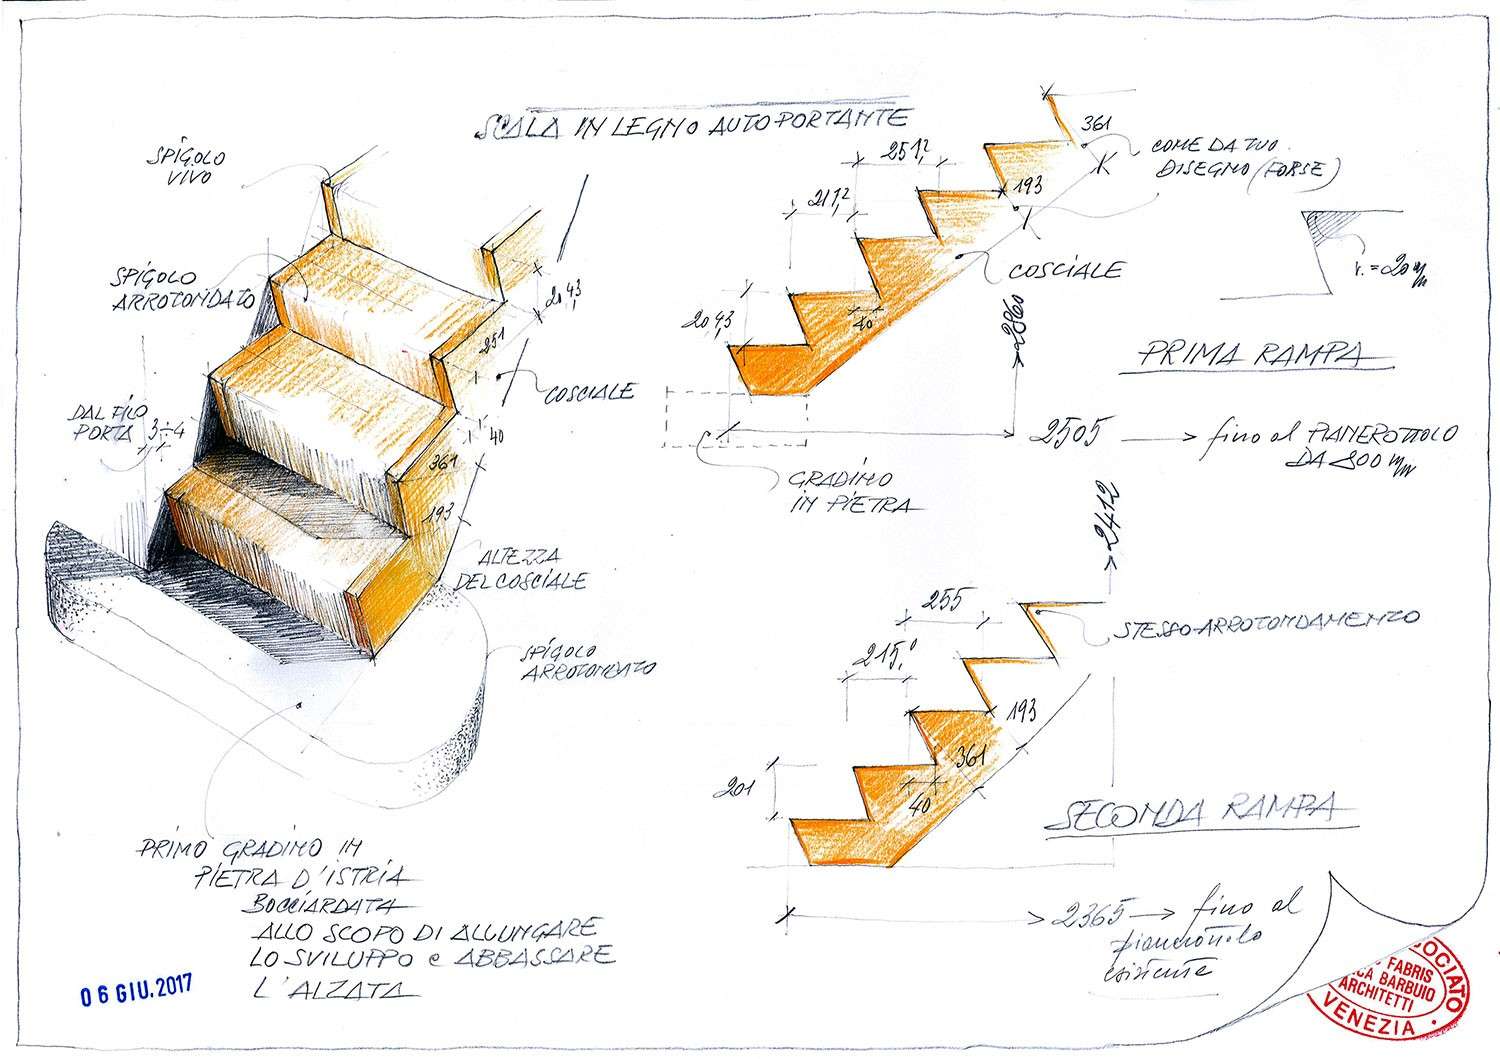 SCALA IN LEGNO AUTOPORTANTE
SPIGOLO
VIVO
SPIGOLO
ARROTONDATO
DAL FILO
PORTA 3÷4
204,3
251
COSCIALE
40
361
193
ALTEZZA
DEL COSCIALE
SPIGOLO
ARROTONDATO
PRIMO GRADINO IN
PIETRA D'ISTRIA
BOCCIARDATA
ALLO SCOPO DI ALLUNGARE
LO SVILUPPO e ABBASSARE
L'ALZATA
06 GIU. 2017
251,2
211,2
204,3
40
361
193
COME DA TUO
DISEGNO (FORSE)
COSCIALE
r. = 20 mm
PRIMA RAMPA
2860
2505 → fino al PIANEROTTOLO
DA 800 mm
GRADINO
IN PIETRA
2412
255
215,0
STESSO ARROTONDAMENTO
193
361
40
201
SECONDA RAMPA
2365 → fino al
pianerottolo
esistente
OCIATO
FABRIS
CA BARBUIO
ARCHITETTI
VENEZIA